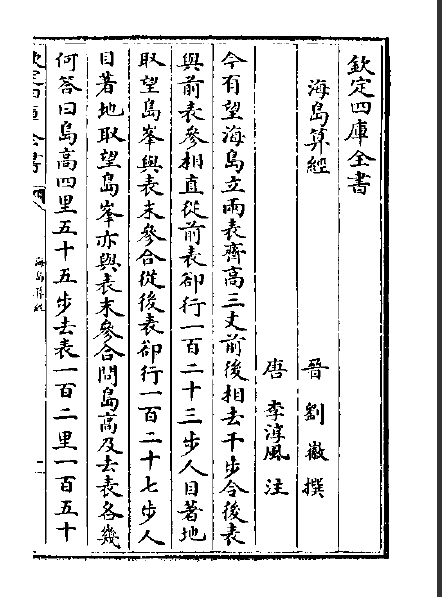 欽定四庫全書
海島算經
晉 劉徽 撰
唐 李淳風 注
今有望海島立兩表齊高三丈前後相去千步令後表
與前表參相直從前表卻行一百二十三步人目著地
取望島峯與表末參合從後表卻行一百二十七步人
目著地取望島峯亦與表末參合問島高及去表各幾
何答曰島高四里五十五步去表一百二里一百五十
欽定四庫全書
海島算經